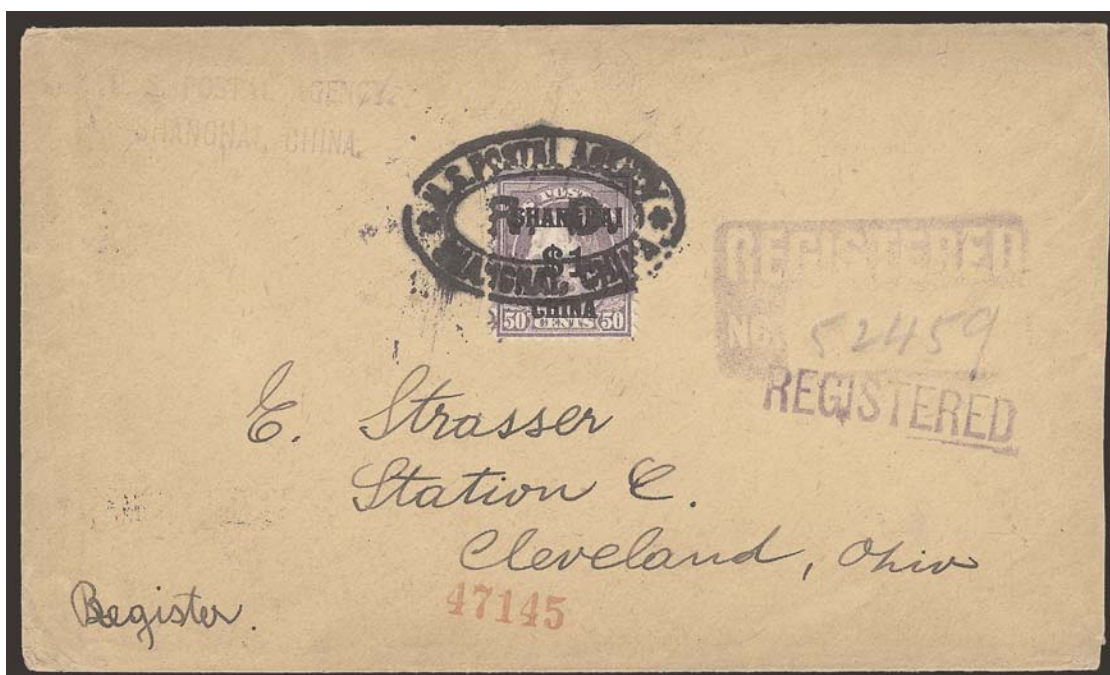 U. S. POSTAL AGENCY.
SHANGHAI, CHINA.
U.S. POSTAL AGENCY
SHANGHAI, CHINA.
POST
SHANGHAI
$1
CHINA
50 CENTS 50
REGISTERED
No. 52459
REGISTERED
E. Strasser
Station C.
Cleveland, Ohio
47145
Register.